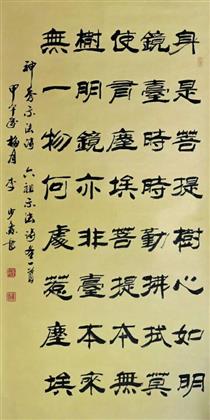 身是菩提樹心如明
鏡臺時時勤拂拭莫
使有塵埃菩提本無
樹明鏡亦非臺本來
無一物何處惹塵埃
神秀示法詩 六祖示法詩各一首
甲午 梅月 李